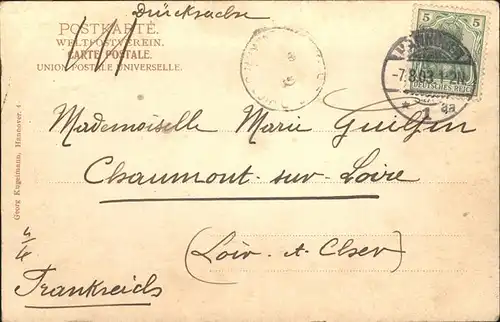 Drücksache
POSTKARTE.
WELTPOSTVEREIN.
CARTE POSTALE.
UNION POSTALE UNIVERSELLE.
5 5
DEUTSCHES REICH
HANNOVER
-7.8.03.1-2N.
* 1 qa
Mademoiselle Marie Guilpin
Chaumont-sur-Loire
(Loir-et-Cher)
Frankreich
Georg Kugelmann, Hannover. 4